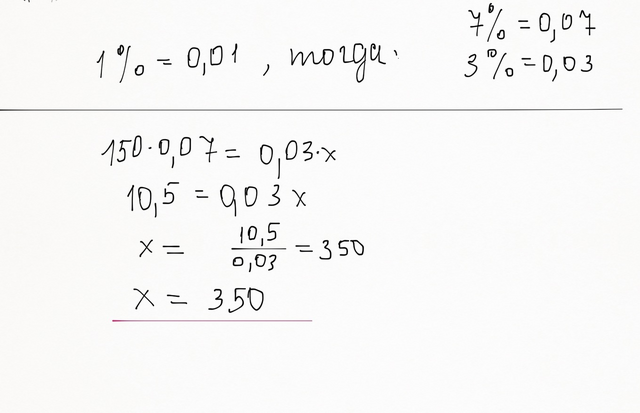 7% = 0,07
1% = 0,01 , тогда:
3% = 0,03
150·0,07 = 0,03·x
10,5 = 0,03x
x = 10,5/0,03 = 350
x = 350